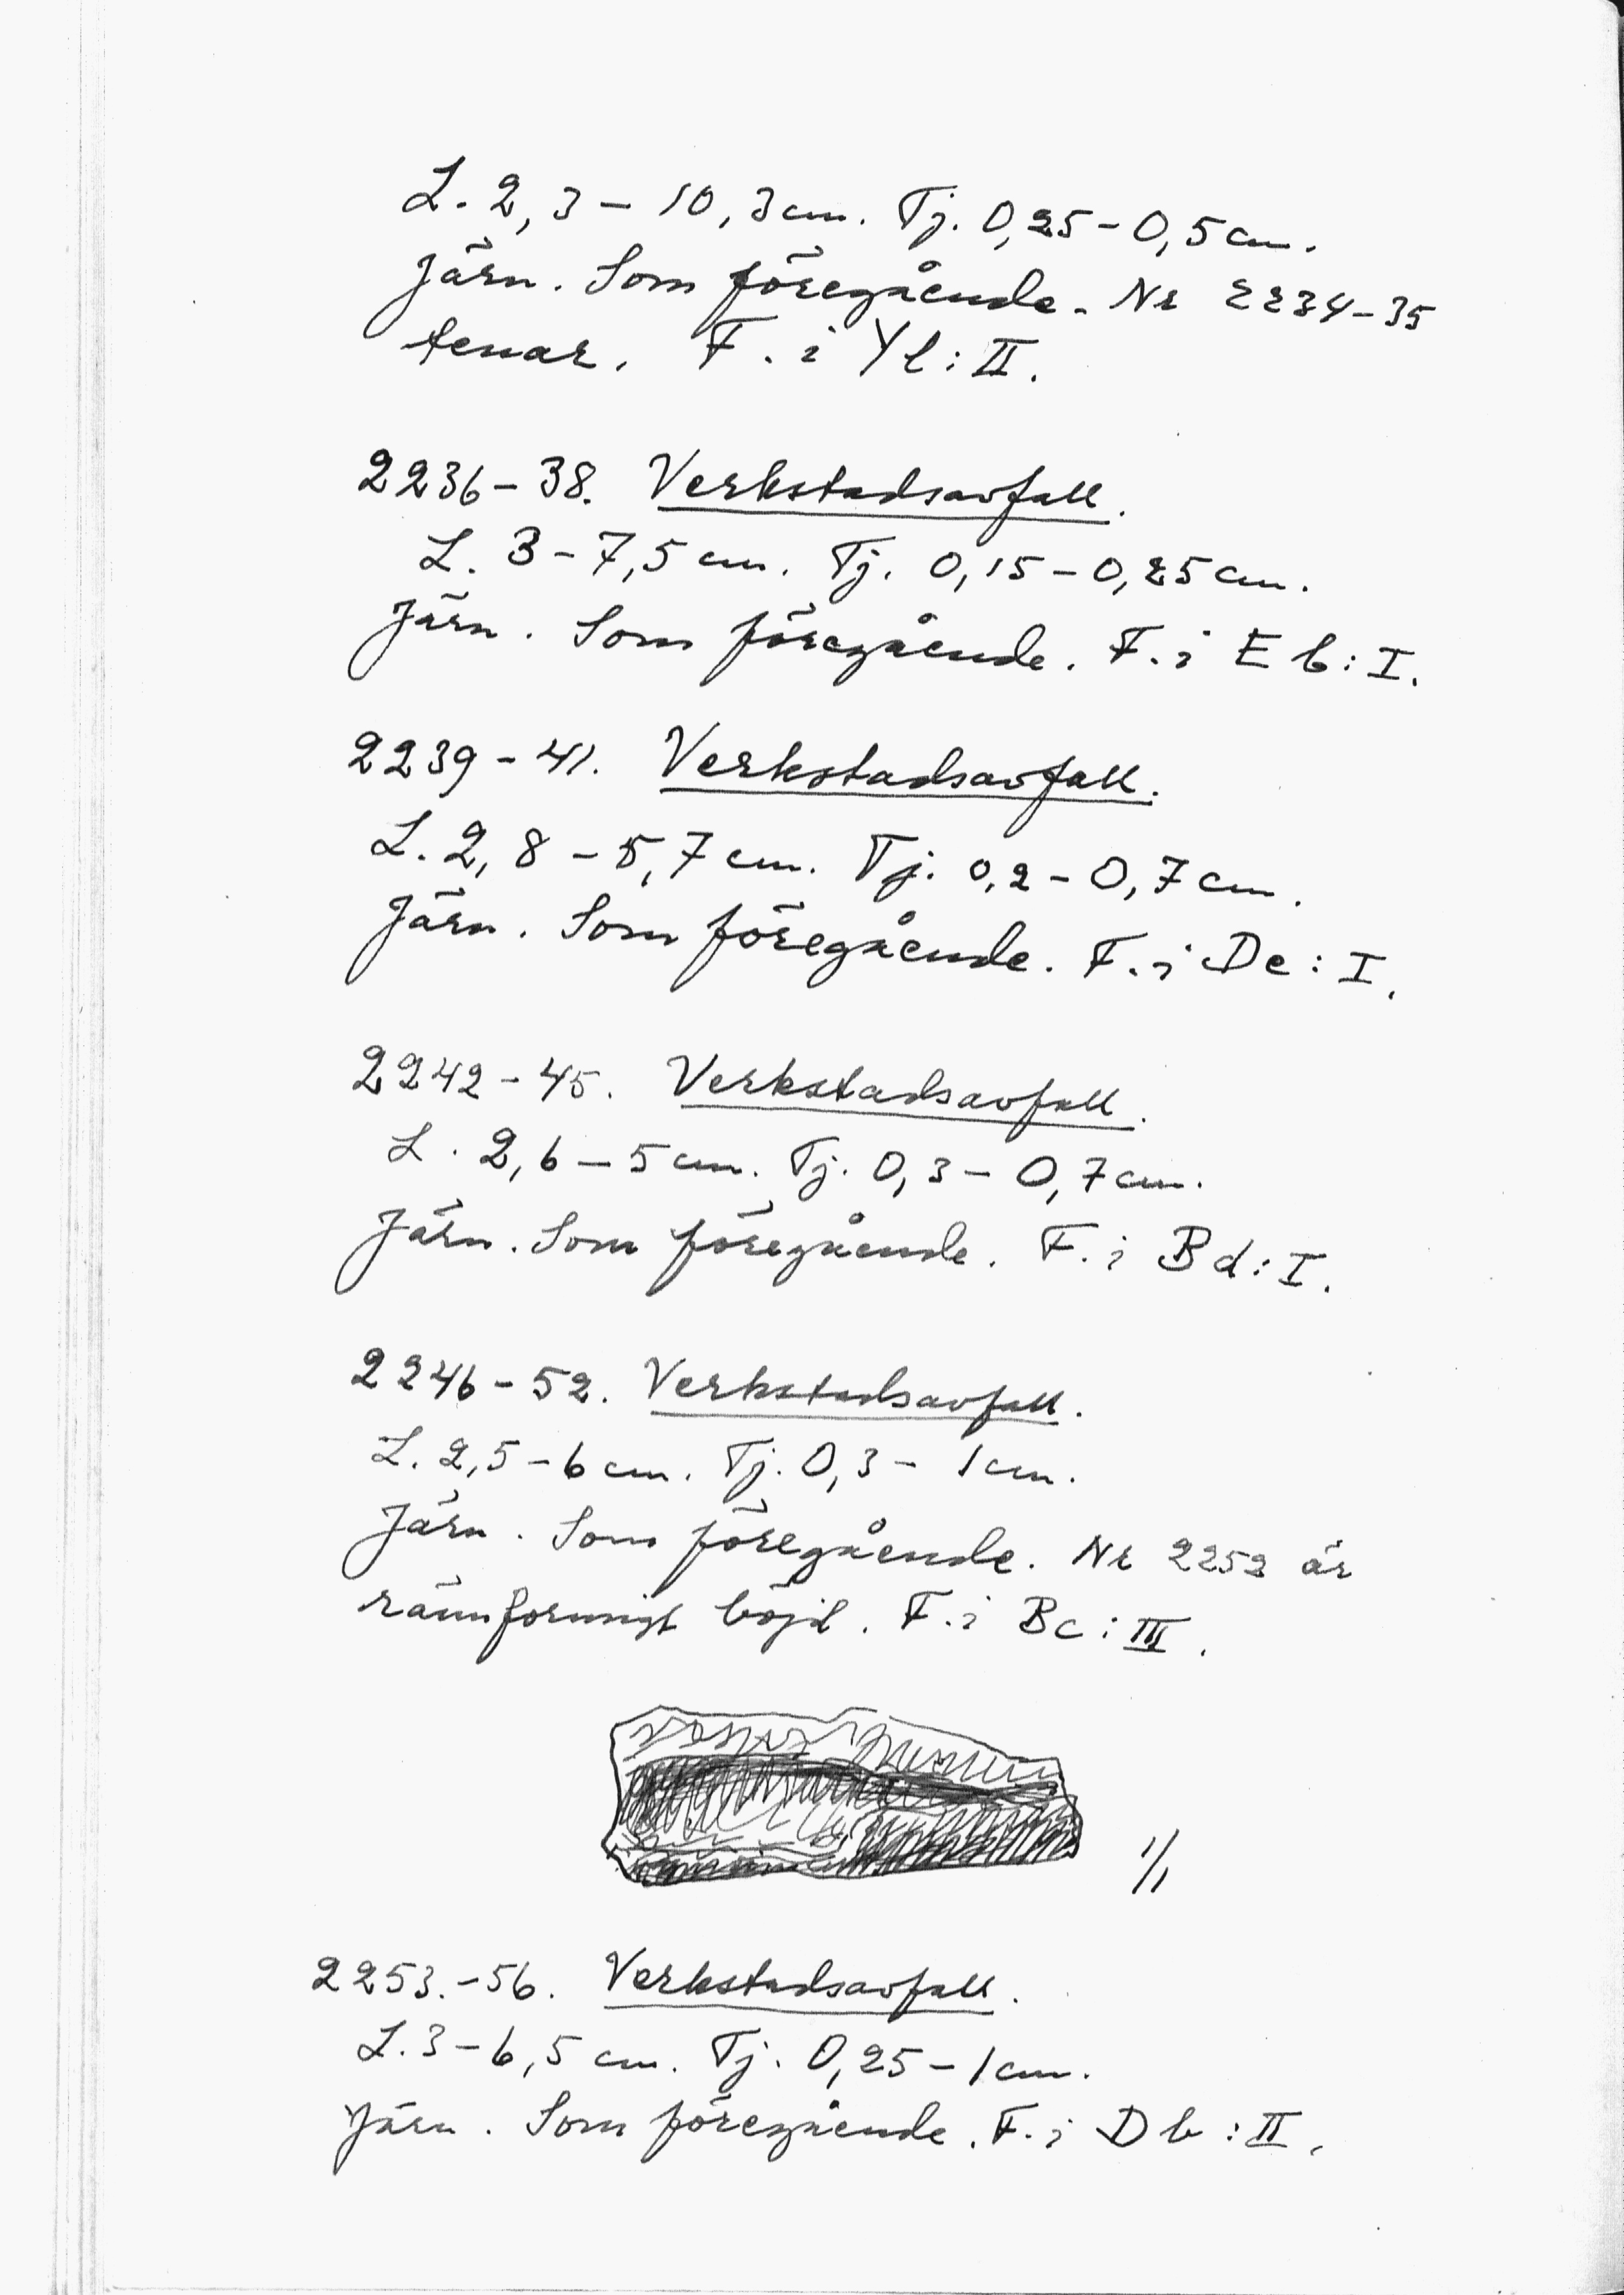 L. 2,3 – 10,3 cm. Tj. 0,25 – 0,5 cm.
Järn. Som föregående. Nr 2234–35
tenar. F. i Yl: II.
2236–38. Verkstadsavfall.
L. 3 – 7,5 cm. Tj. 0,15 – 0,25 cm.
Järn. Som föregående. F. i Eb: I.
2239–41. Verkstadsavfall.
L. 2,8 – 5,7 cm. Tj. 0,2 – 0,7 cm.
Järn. Som föregående. F. i De: I.
2242–45. Verkstadsavfall.
L. 2,6 – 5 cm. Tj. 0,3 – 0,7 cm.
Järn. Som föregående. F. i Bd: I.
2246–52. Verkstadsavfall.
L. 2,5 – 6 cm. Tj. 0,3 – 1 cm.
Järn. Som föregående. Nr 2252 är
rännformigt böjd. F. i Bc: III.
1/1
2253.–56. Verkstadsavfall.
L. 3 – 6,5 cm. Tj. 0,25 – 1 cm.
Järn. Som föregående. F. i Db: II.